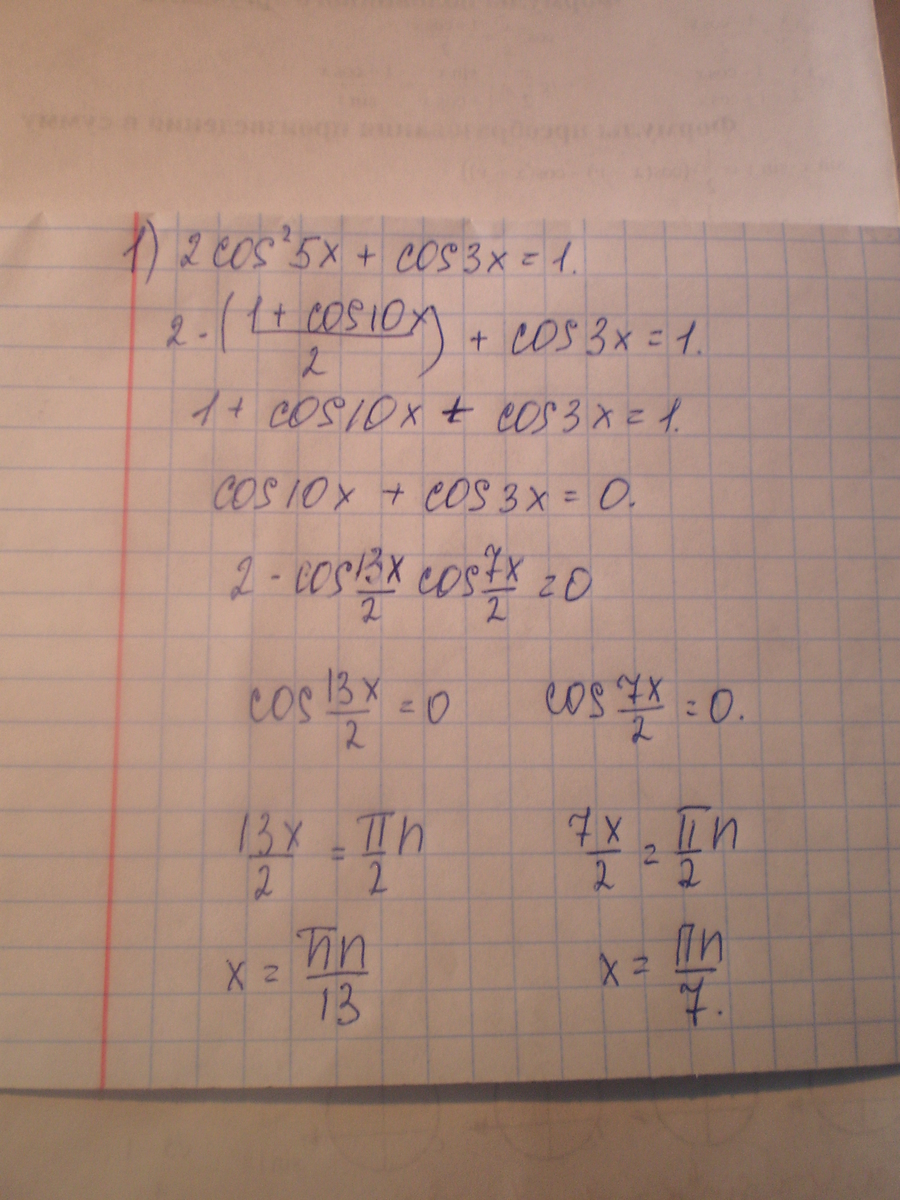 Формулы преобразования произведений в сумму
1) 2 cos² 5x + cos 3x = 1.
2 · ((1 + cos 10x)/2) + cos 3x = 1.
1 + cos 10x + cos 3x = 1.
cos 10x + cos 3x = 0.
2 · cos 13x/2 cos 7x/2 = 0
cos 13x/2 = 0 cos 7x/2 = 0.
13x/2 = π/2 n 7x/2 = π/2 n
x = πn/13 x = πn/7.